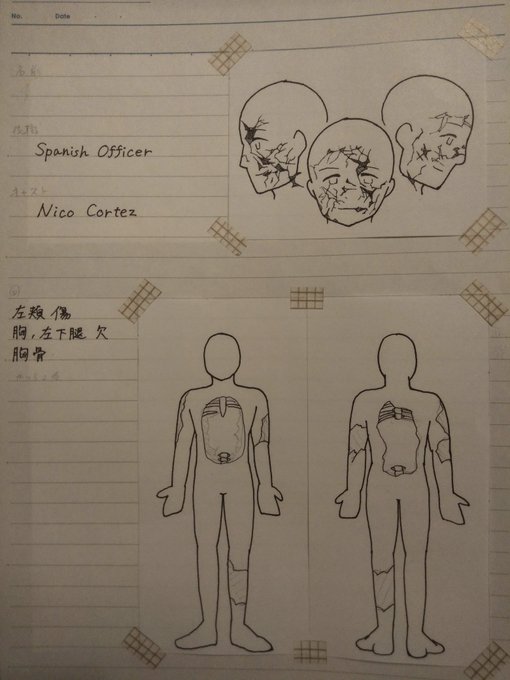 No.
Date
名前
役職
Spanish Officer
キャスト
Nico Cortez
左頬 傷
胸, 左下腿 欠
胸骨